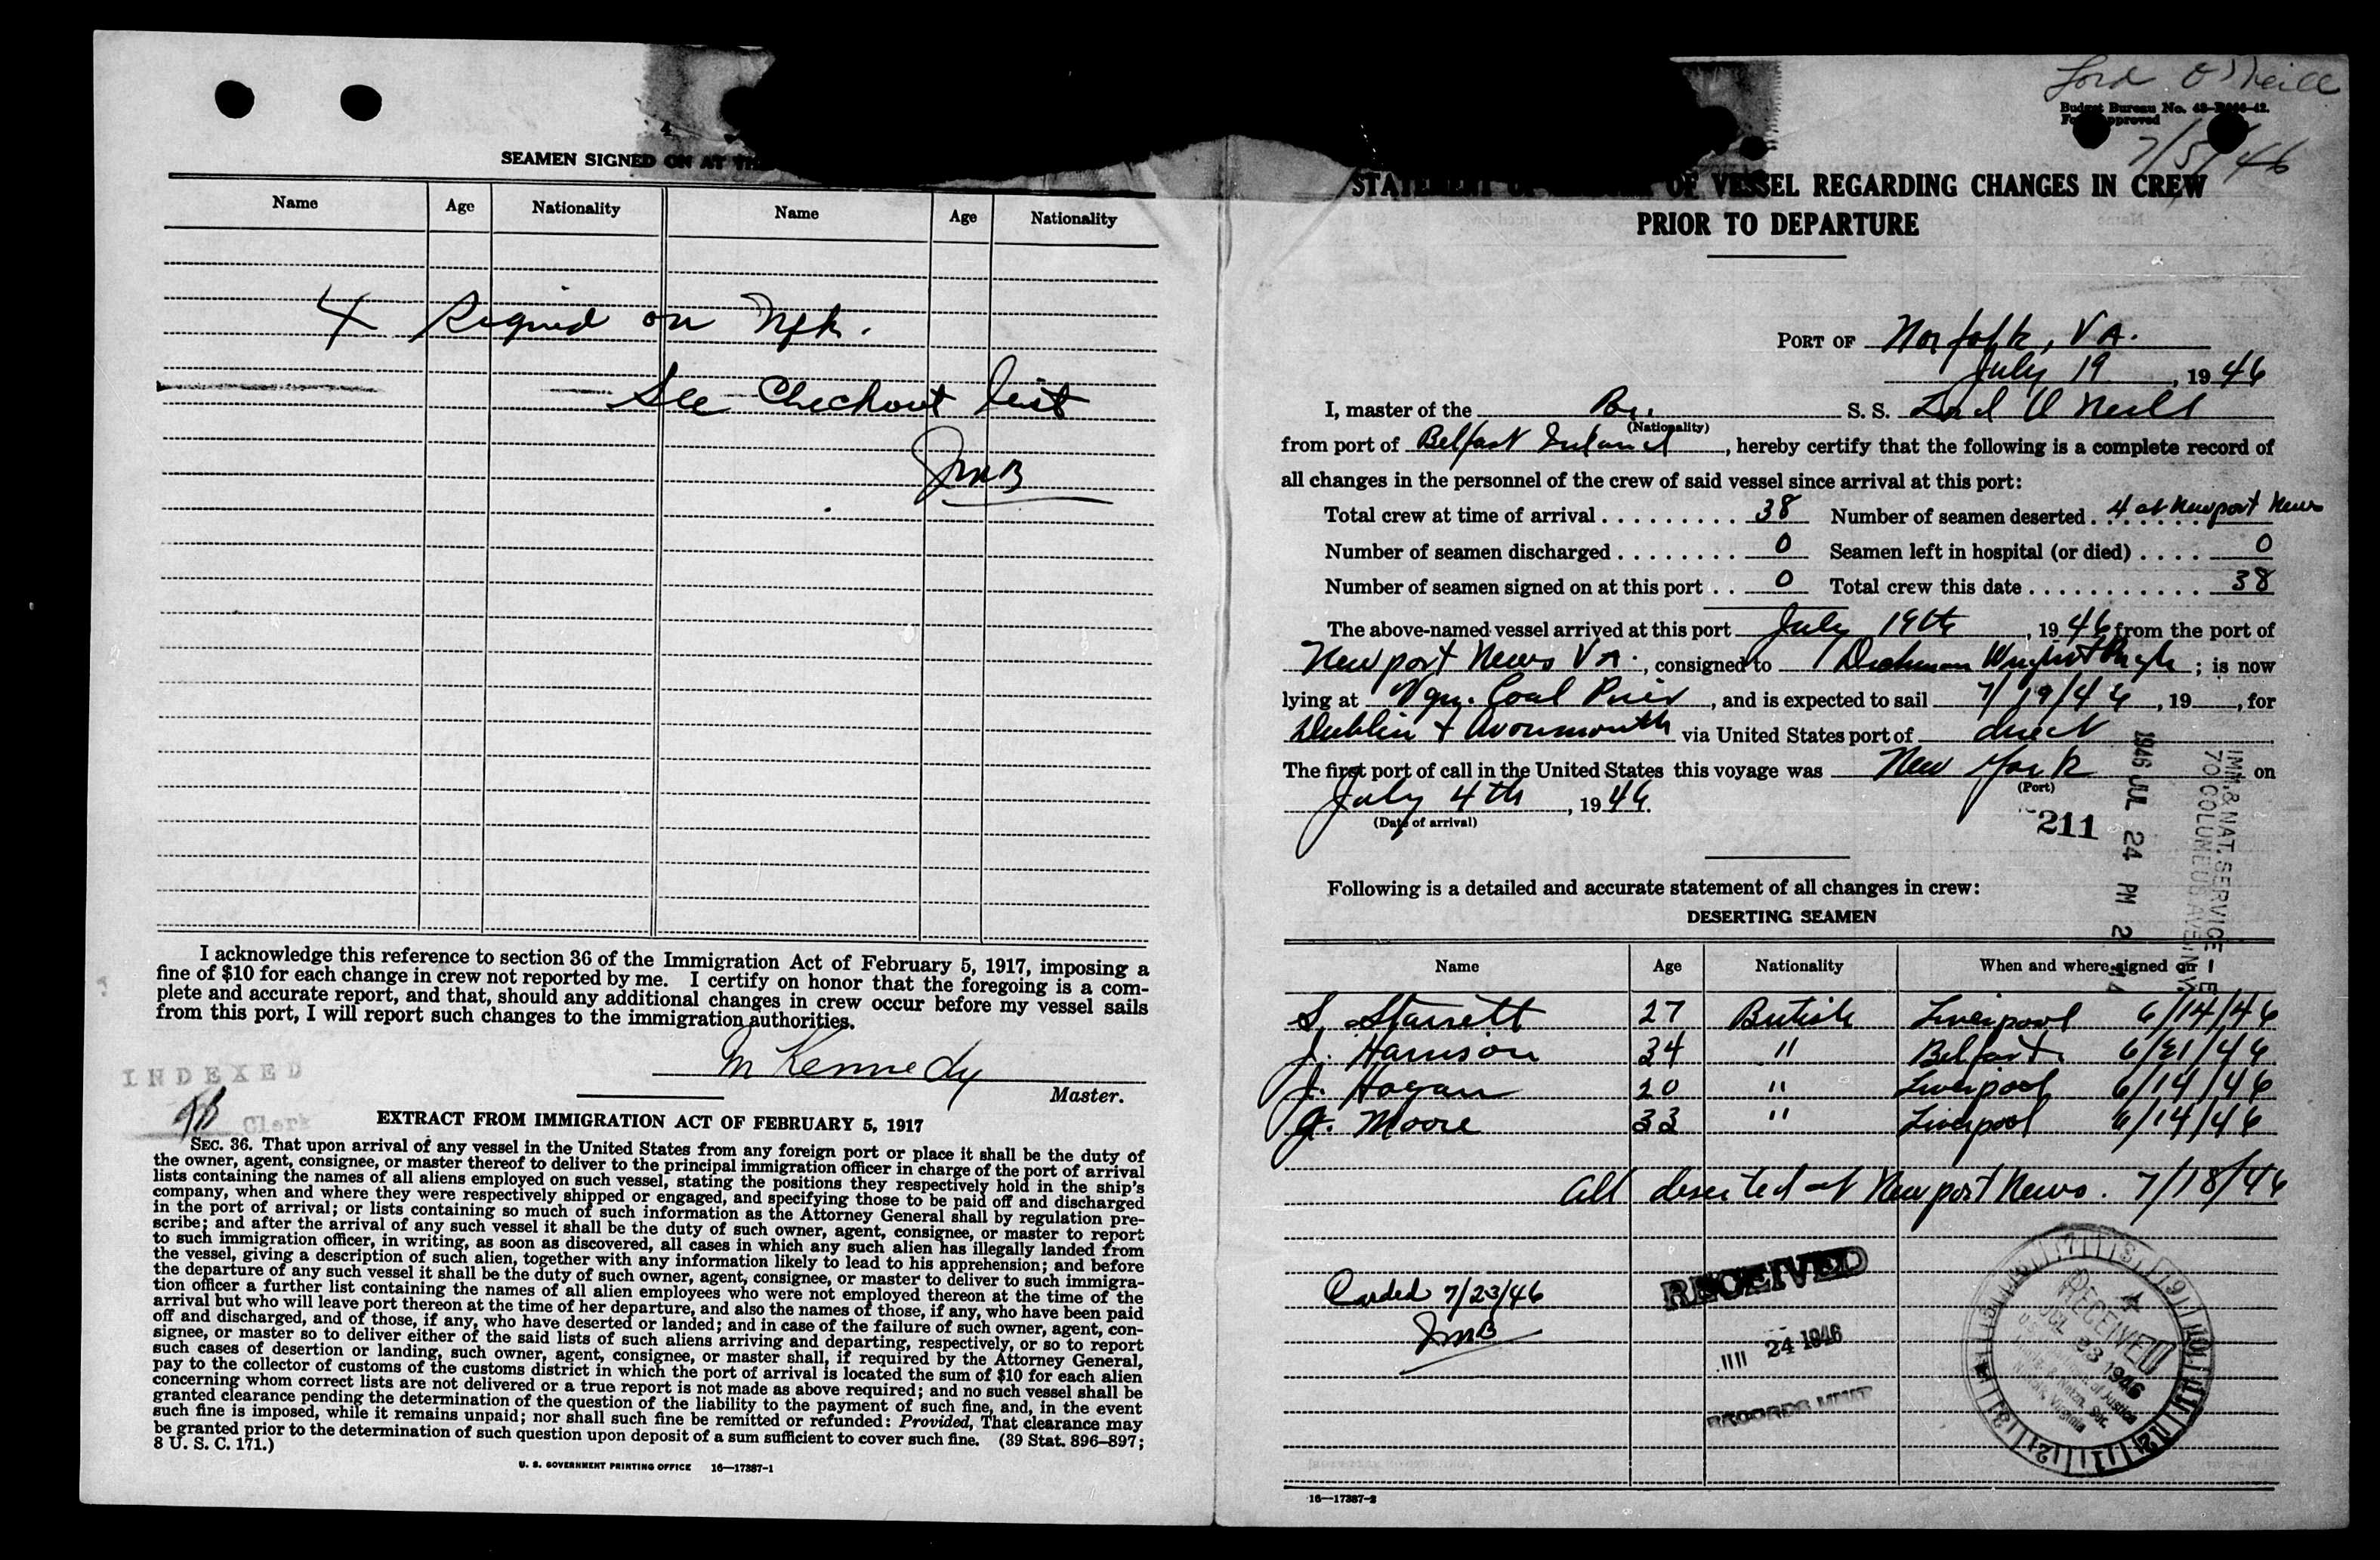 SEAMEN SIGNED ON AT
Name Age Nationality Name Age Nationality
4 Signed on Nfk.
See Checkout list
JMB
I acknowledge this reference to section 36 of the Immigration Act of February 5, 1917, imposing a
fine of $10 for each change in crew not reported by me. I certify on honor that the foregoing is a com-
plete and accurate report, and that, should any additional changes in crew occur before my vessel sails
from this port, I will report such changes to the immigration authorities.
M Kennedy
Master.
INDEXED
Clerk
EXTRACT FROM IMMIGRATION ACT OF FEBRUARY 5, 1917
SEC. 36. That upon arrival of any vessel in the United States from any foreign port or place it shall be the duty of
the owner, agent, consignee, or master thereof to deliver to the principal immigration officer in charge of the port of arrival
lists containing the names of all aliens employed on such vessel, stating the positions they respectively hold in the ship's
company, when and where they were respectively shipped or engaged, and specifying those to be paid off and discharged
in the port of arrival; or lists containing so much of such information as the Attorney General shall by regulation pre-
scribe; and after the arrival of any such vessel it shall be the duty of such owner, agent, consignee, or master to report
to such immigration officer, in writing, as soon as discovered, all cases in which any such alien has illegally landed from
the vessel, giving a description of such alien, together with any information likely to lead to his apprehension; and before
the departure of any such vessel it shall be the duty of such owner, agent, consignee, or master to deliver to such immigra-
tion officer a further list containing the names of all alien employees who were not employed thereon at the time of the
arrival but who will leave port thereon at the time of her departure, and also the names of those, if any, who have been paid
off and discharged, and of those, if any, who have deserted or landed; and in case of the failure of such owner, agent, con-
signee, or master so to deliver either of the said lists of such aliens arriving and departing, respectively, or so to report
such cases of desertion or landing, such owner, agent, consignee, or master shall, if required by the Attorney General,
pay to the collector of customs of the customs district in which the port of arrival is located the sum of $10 for each alien
concerning whom correct lists are not delivered or a true report is not made as above required; and no such vessel shall be
granted clearance pending the determination of the question of the liability to the payment of such fine, and, in the event
such fine is imposed, while it remains unpaid; nor shall such fine be remitted or refunded: Provided, That clearance may
be granted prior to the determination of such question upon deposit of a sum sufficient to cover such fine. (39 Stat. 896–897;
8 U. S. C. 171.)
U. S. GOVERNMENT PRINTING OFFICE 16—17387-1
Lord O'Neill
Budget Bureau No.
approved
7/5/46
STATEMENT OF VESSEL REGARDING CHANGES IN CREW
PRIOR TO DEPARTURE
PORT OF Norfolk, VA.
July 19, 1946
I, master of the Br. S. S. Lord O Neill
(Nationality)
from port of Belfast Ireland, hereby certify that the following is a complete record of
all changes in the personnel of the crew of said vessel since arrival at this port:
Total crew at time of arrival 38 Number of seamen deserted 4 at Newport News
Number of seamen discharged 0 Seamen left in hospital (or died) 0
Number of seamen signed on at this port 0 Total crew this date 38
The above-named vessel arrived at this port July 19th, 1946 from the port of
Newport News VA., consigned to Dichman Wright & Pugh; is now
lying at Vgn. Coal Pier, and is expected to sail 7/19/46, 19 , for
Dublin + Avonmouth via United States port of direct
The first port of call in the United States this voyage was New York on
(Port)
July 4th, 1946.
(Date of arrival)
211
IMM. & NAT. SERVICE
70 COLUMBUS AVE. N.Y.
1946 JUL 24 PM 2
Following is a detailed and accurate statement of all changes in crew:
DESERTING SEAMEN
Name Age Nationality When and where signed on
S. Starrett 27 British Liverpool 6/14/46
J. Harrison 34 " Belfast 6/21/46
J. Hogan 20 " Liverpool 6/14/46
J. Moore 33 " Liverpool 6/14/46
All deserted at Newport News. 7/18/46
Carded 7/23/46
JMB
RECEIVED
24 1946
RECORDS UNIT
RECEIVED
JUL 23 1946
16—17387-2